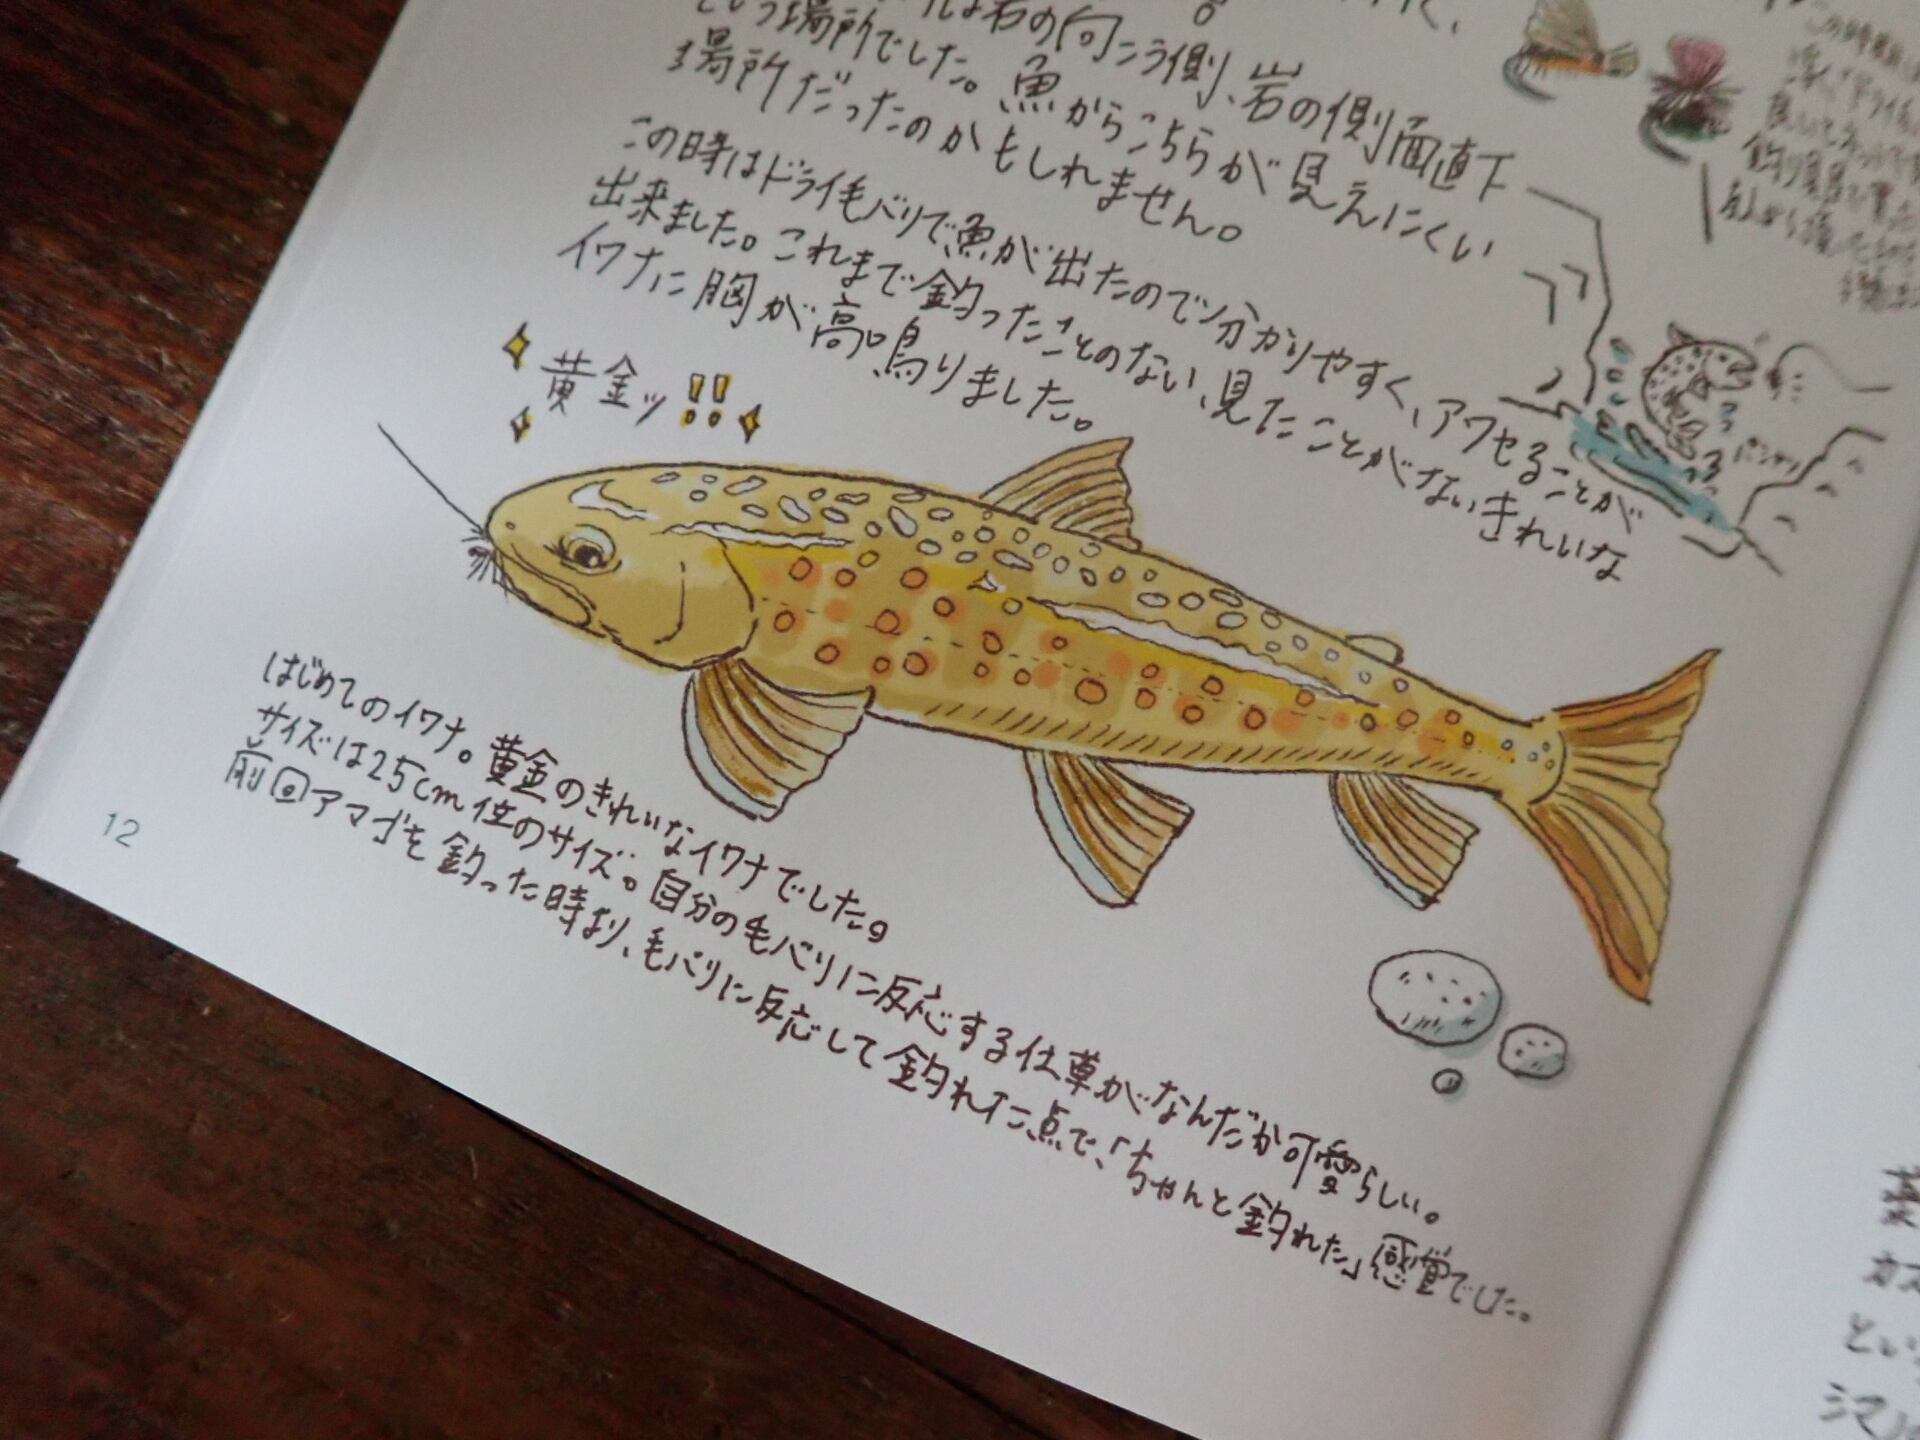 は岩の向こう側、岩の側面直下
という場所でした。魚からこちらが見えにくい
場所だったのかもしれません。
この時はドライ毛バリで魚が出たので分かりやすく、アワセることが
出来ました。これまで釣ったことのない、見たことがないきれいな
イワナに胸が高鳴りました。
黄金ッ!!
バシャッ
はじめてのイワナ。黄金のきれいなイワナでした。
サイズは25cm位のサイズ。自分の毛バリに反応する仕草がなんだか可愛らしい。
前回アマゴを釣った時より、毛バリに反応して釣れた点で、「ちゃんと釣れた」感覚でした。
12